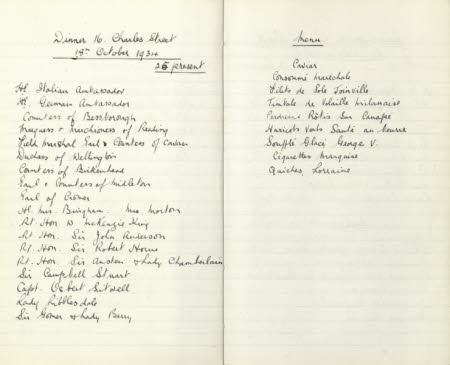 Dinner 16. Charles Street
18th October 1934
26 present
H. Italian Ambassador
H. German Ambassador
Countess of Bessborough
Marquess & Marchioness of Reading
Field Marshal Earl & Countess of Cavan
Duchess of Wellington
Countess of Birkenhead
Earl & Countess of Midleton
Earl of Cromer
Hl. Mrs. Bingham. Mrs. Morton
Rt. Hon W. McKenzie King
Rt. Hon. Sir John Anderson
Rt. Hon. Sir Robert Horne
Rt. Hon Sir Austen & Lady Chamberlain
Sir Campbell Stuart
Capt. Osbert Sitwell
Lady Ribblesdale
Sir Gomer & Lady Berry
Menu
Caviar
Consommé Marechale
Filets de Sole Joinville
Timbale de Volaille Milanaise
Rôtis Sur Canape
Haricots Verts Sauté au beurre
Soufflé Glacé George V.
Cigarettes Marquise
Quiches Lorraine